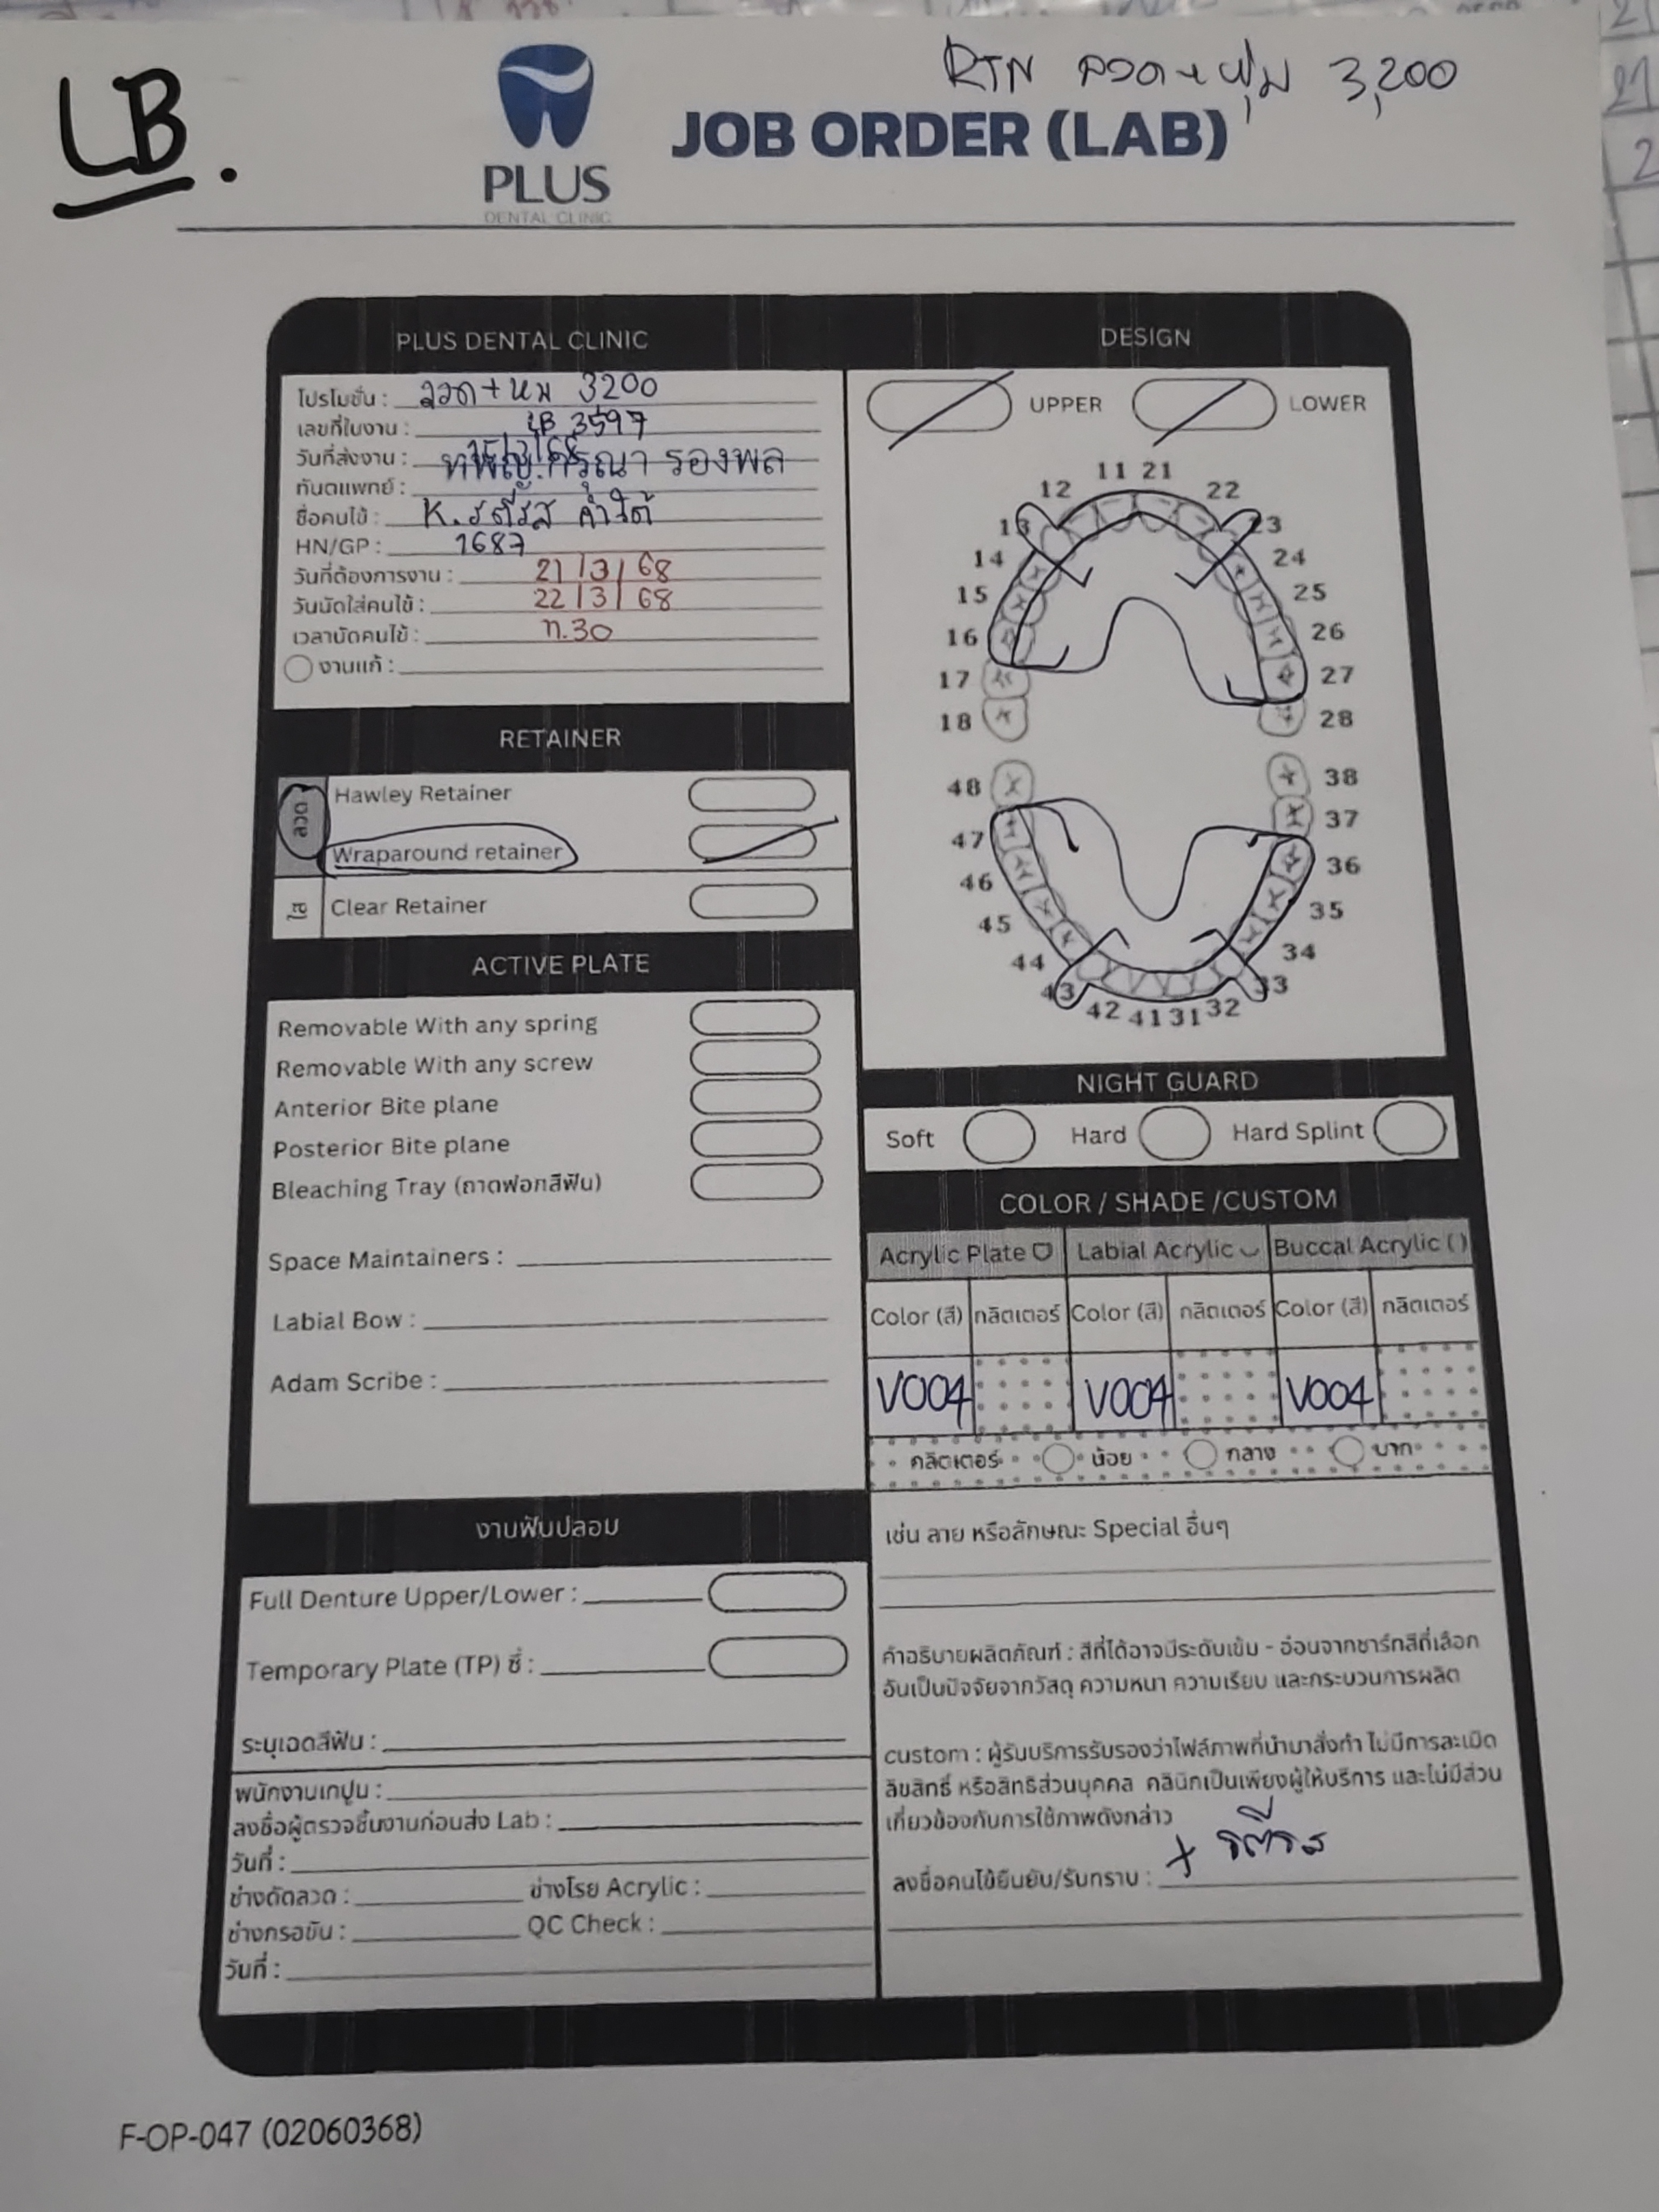 LB.
RTN ลวด + หุ้ม 3,200
PLUS
DENTAL CLINIC
JOB ORDER (LAB)
PLUS DENTAL CLINIC
โปรโมชั่น : ลวด + หุ้ม 3200
เลขที่ใบงาน : LB 3597
วันที่ส่งงาน :
ทันตแพทย์ : ทพญ.กรุณา รองพล
ชื่อคนไข้ : K. รตีรส
HN/GP : 1687
วันที่ต้องการงาน : 21/3/68
วันนัดใส่คนไข้ : 22/3/68
เวลานัดคนไข้ : 17.30
งานแก้ :
RETAINER
ลวด
Hawley Retainer
Wraparound retainer
ใส
Clear Retainer
ACTIVE PLATE
Removable With any spring
Removable With any screw
Anterior Bite plane
Posterior Bite plane
Bleaching Tray (ถาดฟอกสีฟัน)
Space Maintainers :
Labial Bow :
Adam Scribe :
งานฟันปลอม
Full Denture Upper/Lower :
Temporary Plate (TP) ซี่ :
ระบุเฉดสีฟัน :
พนักงานเทปูน :
ลงชื่อผู้ตรวจชิ้นงานก่อนส่ง Lab :
วันที่ :
ช่างดัดลวด : ช่างโรย Acrylic :
ช่างกรอขัน : QC Check :
วันที่ :
DESIGN
UPPER LOWER
11 21
12 22
13 23
14 24
15 25
16 26
17 27
18 28
48 38
47 37
46 36
45 35
44 34
43 33
42 41 31 32
NIGHT GUARD
Soft Hard Hard Splint
COLOR / SHADE /CUSTOM
Acrylic Plate Labial Acrylic Buccal Acrylic ( )
Color (สี) กลิตเตอร์ Color (สี) กลิตเตอร์ Color (สี) กลิตเตอร์
V004 V004 V004
กลิตเตอร์ น้อย กลาง มาก
เช่น ลาย หรือลักษณะ Special อื่นๆ
คำอธิบายผลิตภัณฑ์ : สีที่ได้อาจมีระดับเข้ม - อ่อนจากชาร์ทสีที่เลือก
อันเป็นปัจจัยจากวัสดุ ความหนา ความเรียบ และกระบวนการผลิต
custom : ผู้รับบริการรับรองว่าไฟล์ภาพที่นำมาสั่งทำ ไม่มีการละเมิด
ลิขสิทธิ์ หรือสิทธิส่วนบุคคล คลินิกเป็นเพียงผู้ให้บริการ และไม่มีส่วน
เกี่ยวข้องกับการใช้ภาพดังกล่าว
ลงชื่อคนไข้ยืนยัน/รับทราบ : + รตีรส
F-OP-047 (02060368)